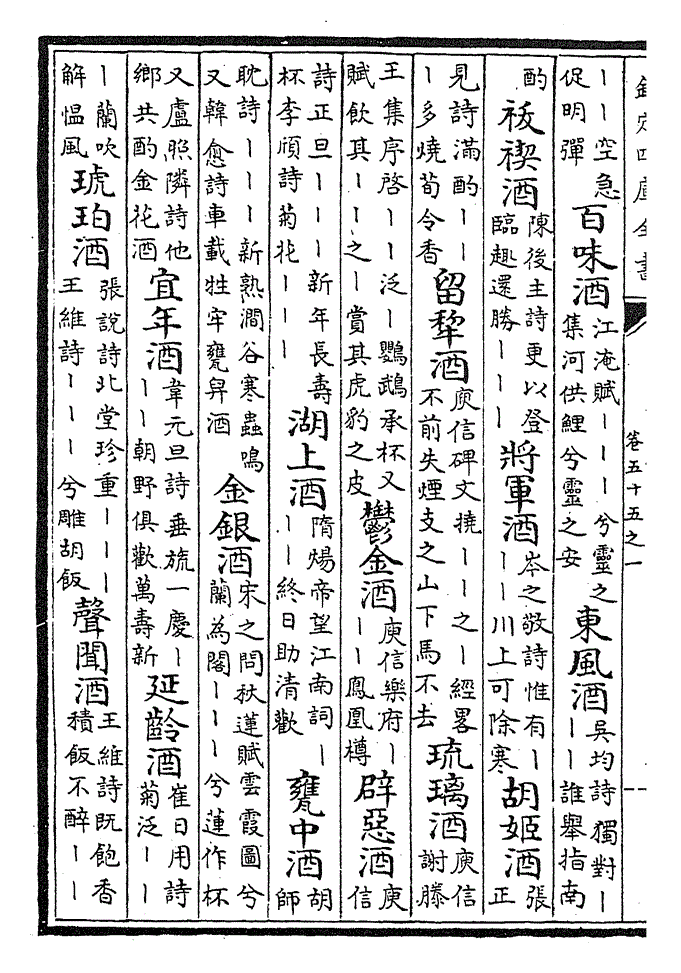 欽定四庫全書 卷五十五之一
｜｜空急促明彈百味酒江淹賦｜｜｜兮靈之集河供鯉兮靈之安東風酒吳均詩獨對｜｜｜誰舉指南
酌祓禊酒陳後主詩更以登臨趣還勝｜｜｜將軍酒岑之敬詩惟有｜｜｜川上可除寒胡姬酒張正
見詩滿酌｜｜｜多燒荀令香留犂酒庾信碑文撓｜｜之｜經畧不前失煙支之山下馬不去琉璃酒庾信謝滕
王集序啓｜｜泛｜鸚鵡承杯又賦飲其｜｜之｜賞其虎豹之皮鬱金酒庾信樂府｜｜｜鳳凰樽辟惡酒庾信
詩正旦｜｜｜新年長壽杯李頎詩菊花｜｜｜湖上酒隋煬帝望江南詞｜｜｜終日助清歡甕中酒胡師
耽詩｜｜｜新熟澗谷寒蟲鳴又韓愈詩車載牲牢甕舁酒金銀酒宋之問秋蓮賦雲霞圖兮蘭為閣｜｜｜兮蓮作杯
又盧照隣詩他鄉共酌金花酒宜年酒韋元旦詩垂旒一慶｜｜｜朝野俱歡萬壽新延齡酒崔日用詩菊泛｜｜
｜蘭吹解愠風琥珀酒張說詩北堂珍重｜｜｜王維詩｜｜｜兮雕胡飯聲聞酒王維詩既飽香積飯不醉｜｜